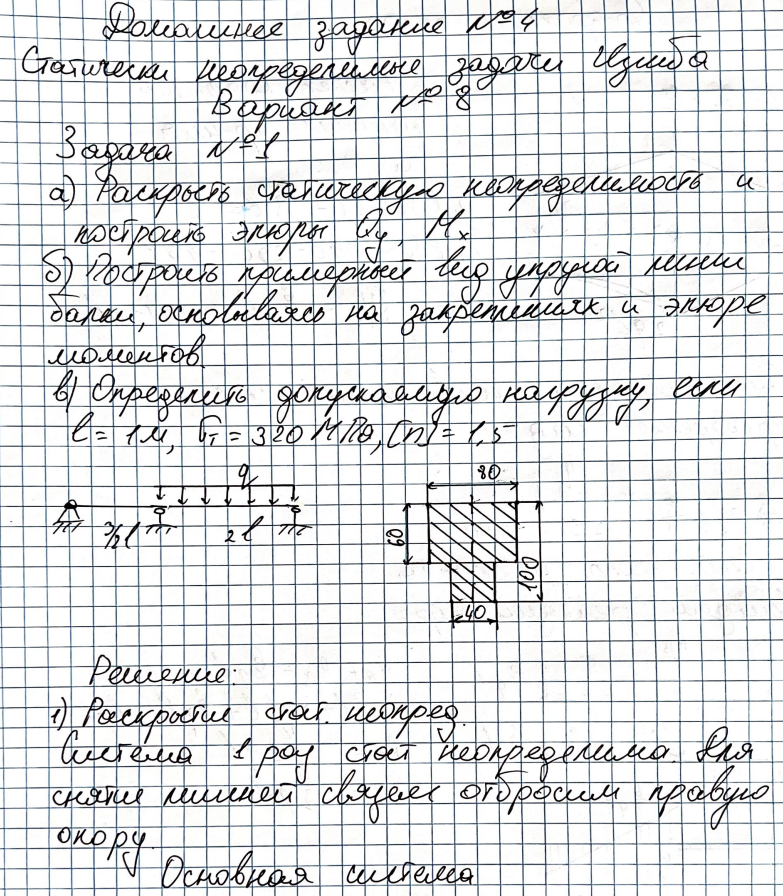 Домашнее задание №4
Статически неопределимые задачи Изгиба
Вариант №8
Задача №1
а) Раскрыть статическую неопределимость и
построить эпюры Qy, Mx
б) Построить примерный вид упругой линии
балки, основываясь на закреплениях и эпюре
моментов.
в) Определить допускаемую нагрузку, если
l = 1м, σт = 320 МПа, [n] = 1,5
q
80
3/2 l
2l
60
100
40
Решение:
1) Раскрытие стат. неопред.
Система 1 раз стат неопределима. Для
снятие лишней связей отбросим правую
опору.
Основная система